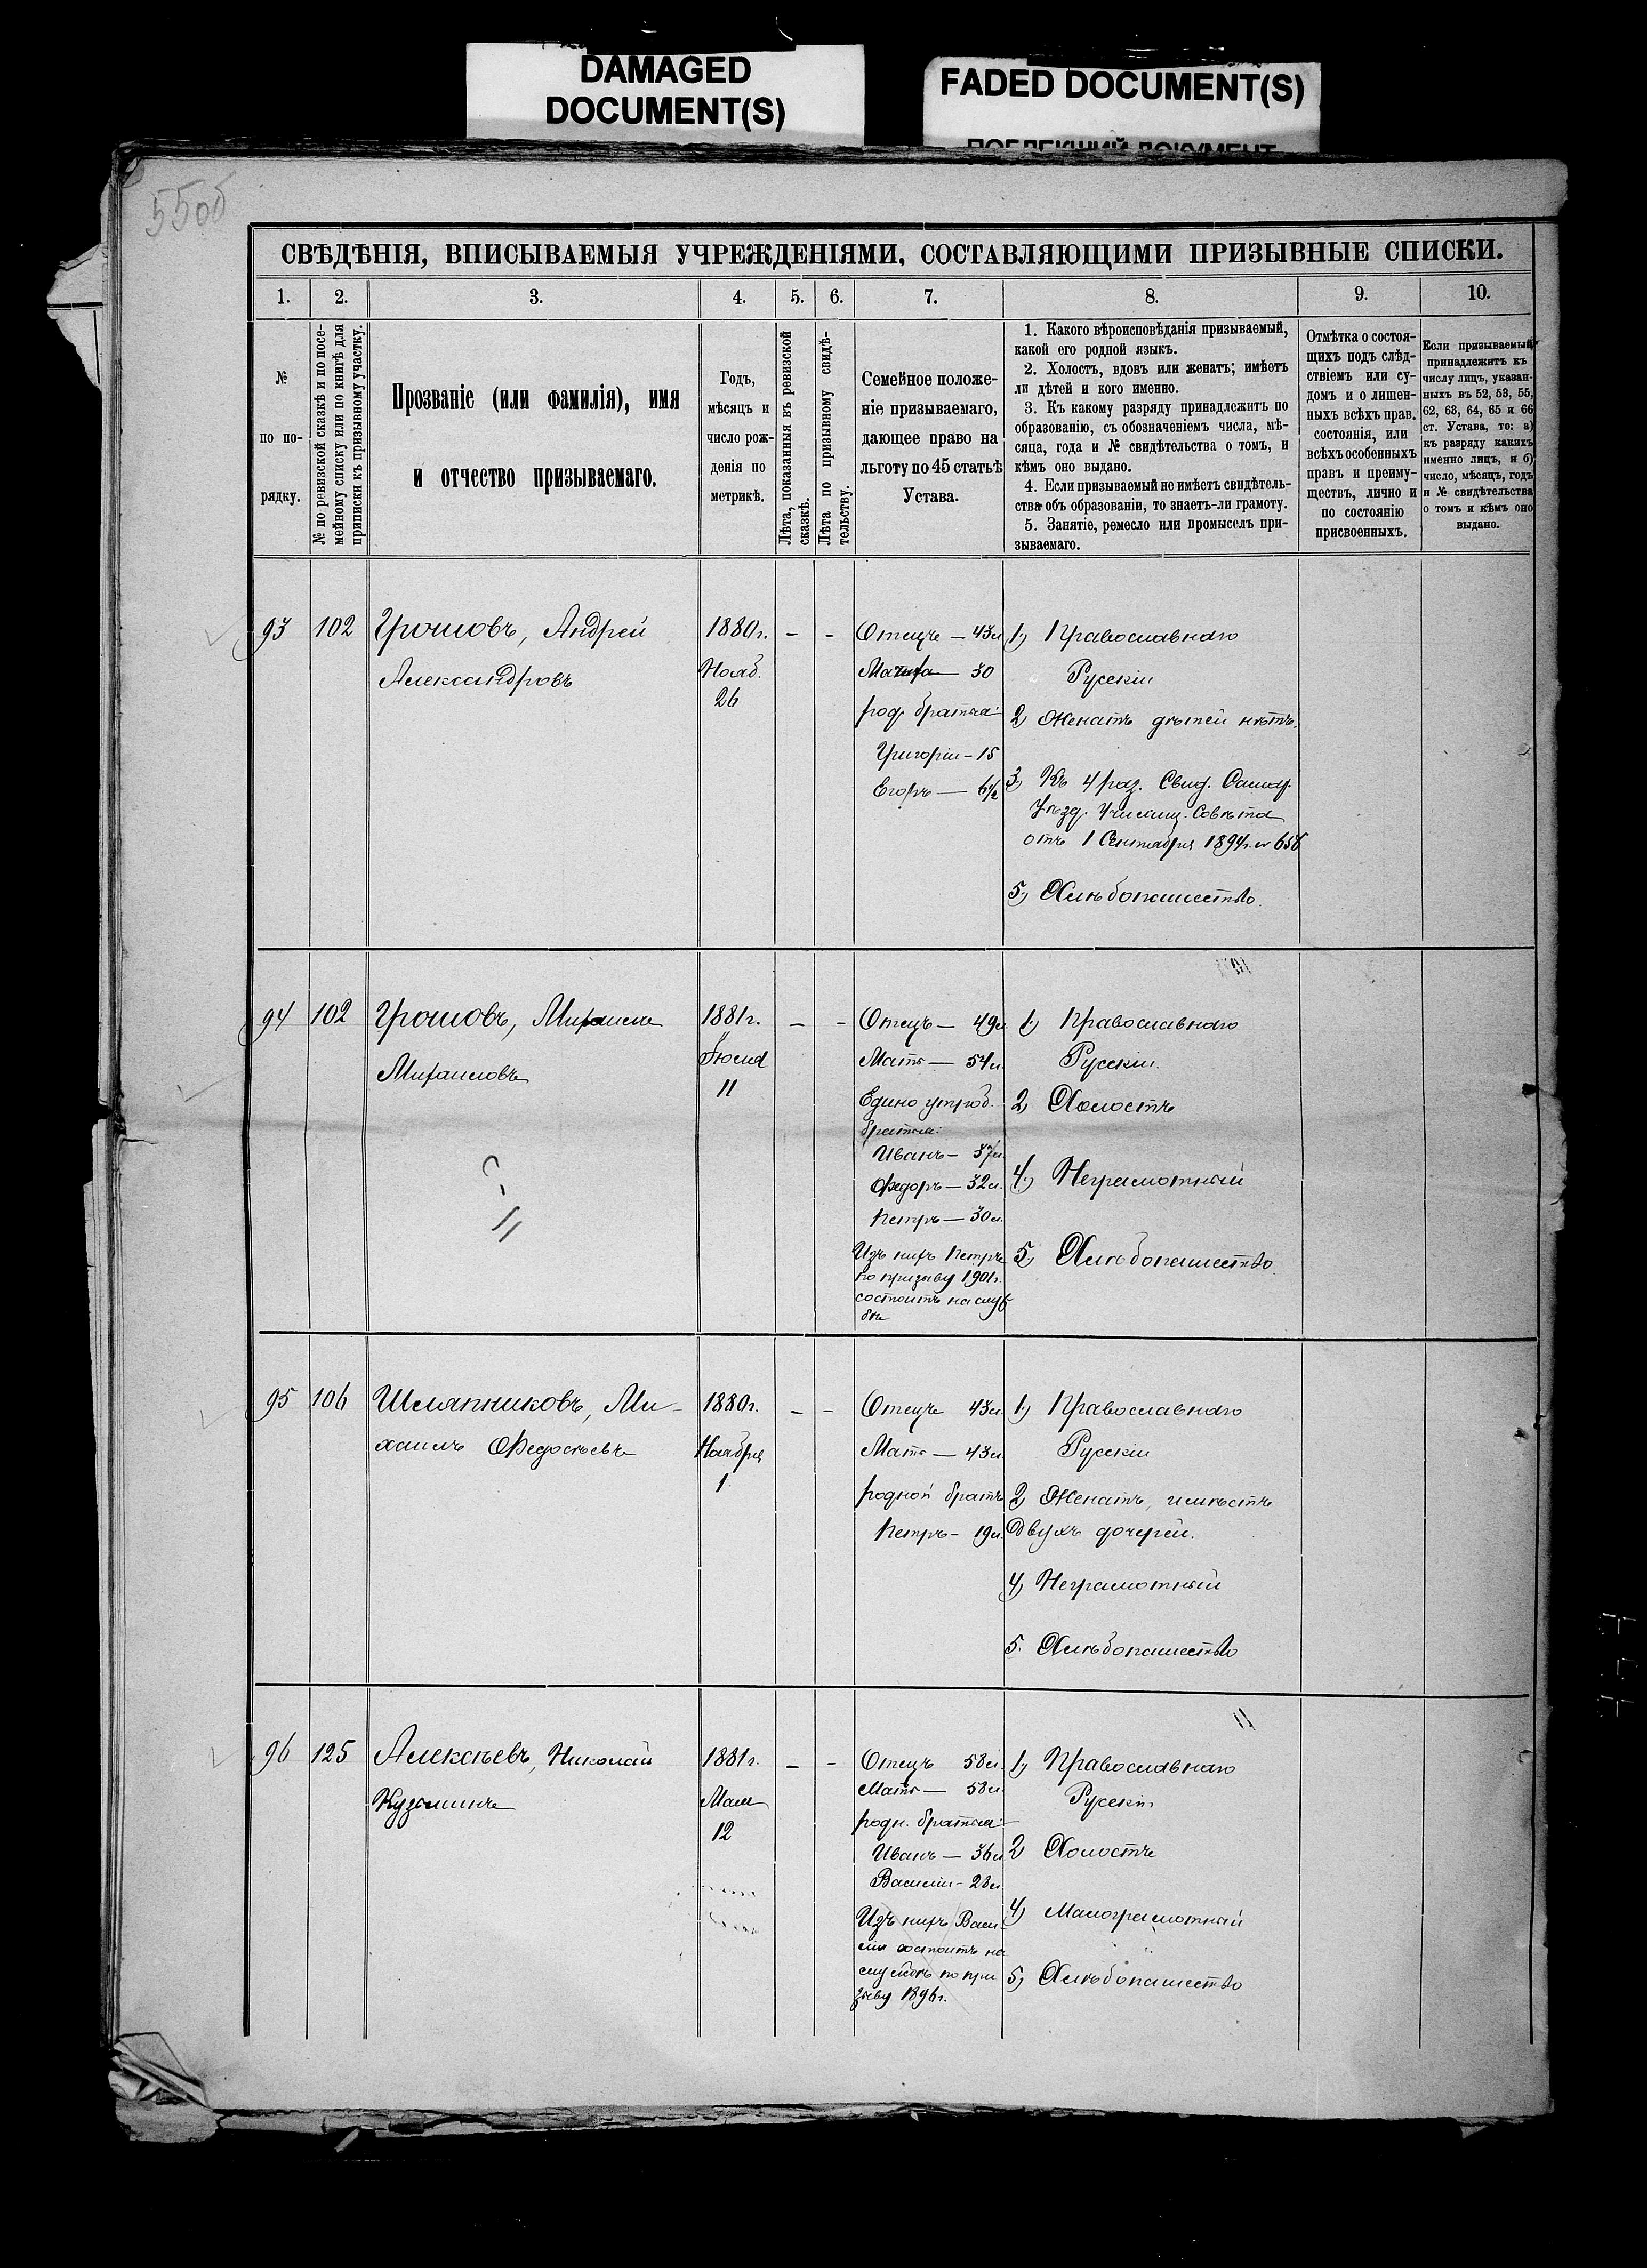 DAMAGED
DOCUMENT(S)
FADED DOCUMENT(S)
ПОБЛЕКШИЙ ДОКУМЕНТ
55об
СВѢДѢНІЯ, ВПИСЫВАЕМЫЯ УЧРЕЖДЕНІЯМИ, СОСТАВЛЯЮЩИМИ ПРИЗЫВНЫЕ СПИСКИ.
1. 2. 3. 4. 5. 6. 7. 8. 9. 10.
№
по по-
рядку.
№ по ревизской сказкѣ и по посе-
мейному списку или по книгѣ для
приписки къ призывному участку.
Прозваніе (или фамилія), имя
и отчество призываемаго.
Годъ,
мѣсяцъ и
число рож-
денія по
метрикѣ.
Лѣта, показанныя въ ревизской
сказкѣ.
Лѣта по призывному свидѣ-
тельству.
Семейное положе-
ніе призываемаго,
дающее право на
льготу по 45 статьѣ
Устава.
1. Какого вѣроисповѣданія призываемый,
какой его родной языкъ.
2. Холостъ, вдовъ или женатъ; имѣетъ
ли дѣтей и кого именно.
3. Къ какому разряду принадлежитъ по
образованію, съ обозначеніемъ числа, мѣ-
сяца, года и № свидѣтельства о томъ, и
кѣмъ оно выдано.
4. Если призываемый не имѣетъ свидѣтель-
ства объ образованіи, то знаетъ-ли грамоту.
5. Занятіе, ремесло или промыселъ при-
зываемаго.
Отмѣтка о состоя-
щихъ подъ слѣд-
ствіемъ или су-
домъ и о лишен-
ныхъ всѣхъ прав.
состоянія, или
всѣхъ особенныхъ
правъ и преиму-
ществъ, лично и
по состоянію
присвоенныхъ.
Если призываемый
принадлежитъ къ
числу лицъ, указан-
ныхъ въ 52, 53, 55,
62, 63, 64, 65 и 66
ст. Устава, то: а)
къ разряду какихъ
именно лицъ, и б)
число, мѣсяцъ, годъ
и № свидѣтельства
о томъ и кѣмъ оно
выдано.
93 102 Грошовъ, Андрей
Александровъ
1880г.
Нояб.
26
- -
Отецъ — 43л
Мачиха — 30
род. братья:
Григорій - 15
Егоръ — 6½
1) Православнаго
Русскій
2) Женатъ дѣтей нѣтъ.
3) Къ 4 раз. Свид. Самар.
Уѣзд. Училищ. Совѣта
отъ 1 Сентября 1894г. № 656
5) Хлѣбопашество.
94 102 Грошовъ, Михаилъ
Михаиловъ
1881г.
Іюля
11
- -
Отецъ — 49л.
Мать — 54л.
Единоутроб.
братья:
Иванъ — 37л.
Федоръ — 32л.
Петръ — 30л.
Изъ нихъ Петръ
по призыву 1901г.
состоитъ на служ
бѣ
1) Православнаго
Русскій.
2) Холостъ
4) Неграмотный
5) Хлѣбопашество.
95 106 Шляпниковъ, Ми-
хаилъ Федосѣевъ
1880г.
Ноября
1
- -
Отецъ 43л.
Мать — 43л.
родной братъ
Петръ - 19л.
1) Православнаго
Русскій
2) Женатъ, имѣетъ
двухъ дочерей.
4) Неграмотный
5. Хлѣбопашество
96 125 Алексѣевъ, Николай
Кузьминъ
1881г.
Мая
12
- -
Отецъ 58л.
Мать — 58л.
родн. братья:
Иванъ — 36л
Василій - 28л.
Изъ нихъ Васи-
лій состоитъ на
службѣ по при
зыву 1896г.
1) Православнаго
Русскій
2) Холостъ
4) Малограмотный
5) Хлѣбопашество